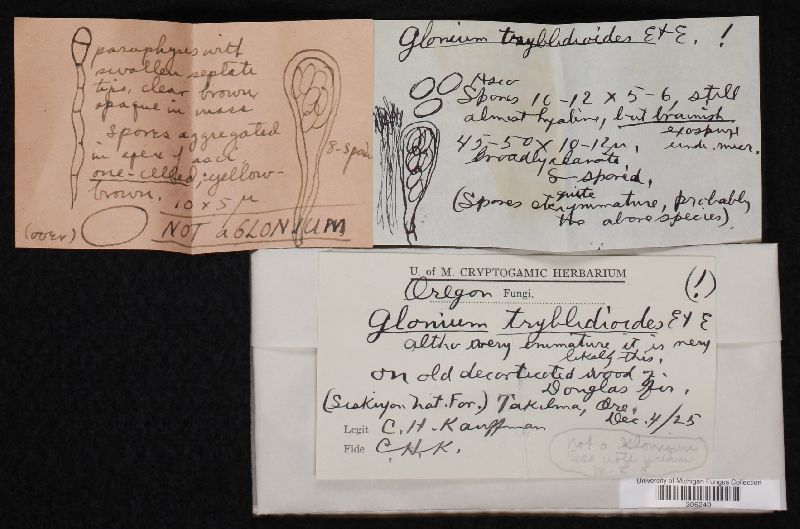 paraphyses with
swollen septate
tips, clear brown,
opaque in mass
Spores aggregated
in apex of asci
one-celled, yellow-
brown.
10 x 5 µ
8-spored
(over)
NOT a GLONIUM
Glonium tryblidioides E & E. !
Asco
Spores 10-12 x 5-6, still
almost hyaline, but brainish
exospore
under micr.
45-50 x 10-12µ,
broadly clavate
8-spored,
quite
(Spores immature, probably
the above species)
U. of M. CRYPTOGAMIC HERBARIUM
Oregon Fungi.
(!)
Glonium tryblidioides E & E
altho very immature it is very
likely this.
On old decorticated wood of
Douglas fir.
(Siskiyou Nat. For.) Takilma, Ore.
Dec. 4/25
Legit C. H. Kauffman
Fide C. H. K.
not a Glonium
see note within
University of Michigan Fungus Collection
306249